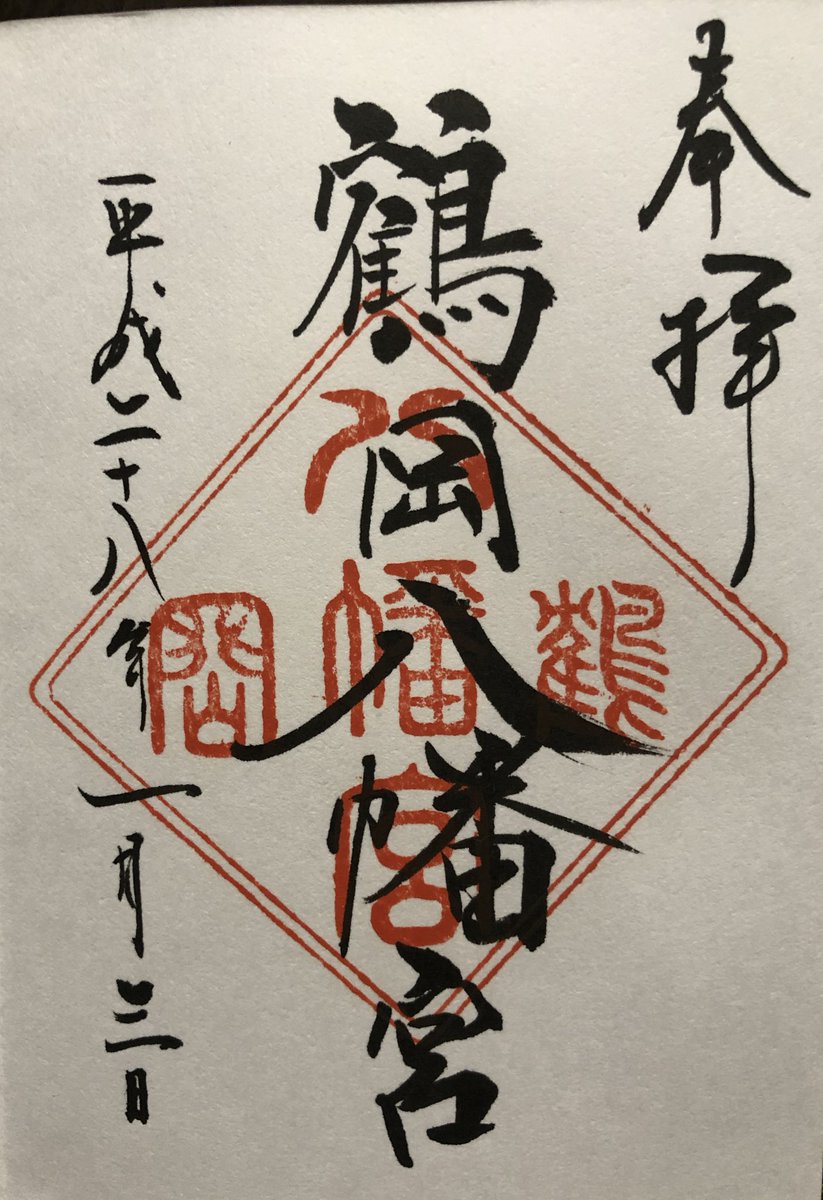 奉拝
鶴岡八幡宮
平成二十八年一月三日
鶴 八幡宮 岡